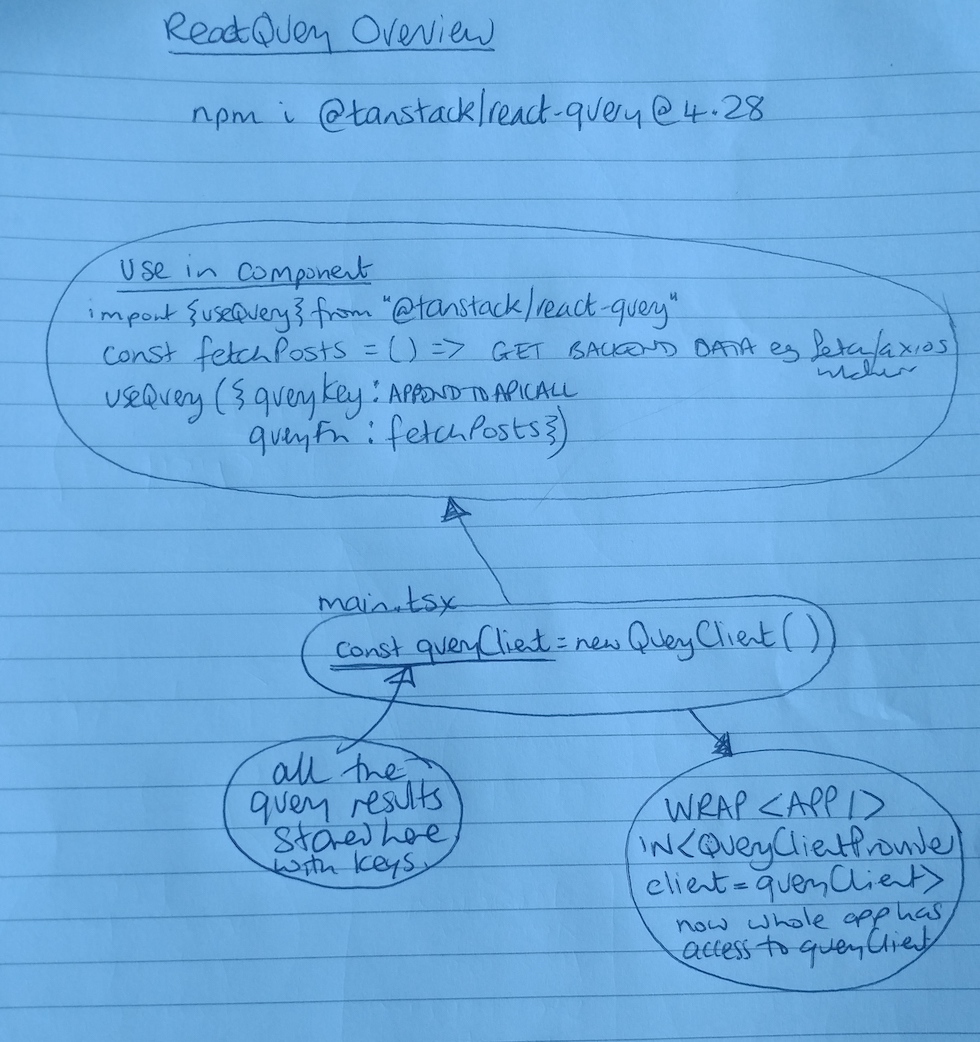 React Query Overview
npm i @tanstack/react-query@4.28
Use in component
import {useQuery} from "@tanstack/react-query"
const fetchPosts = () => GET BACKEND DATA eg fetch/axios
useQuery ({queryKey: APPEND TO API CALL
queryFn : fetchPosts})
main.tsx
const queryClient = new QueryClient()
all the
query results
stored here
with keys.
WRAP <APP/>
IN <QueryClientProvider
client = queryClient>
now whole app has
access to queryClient